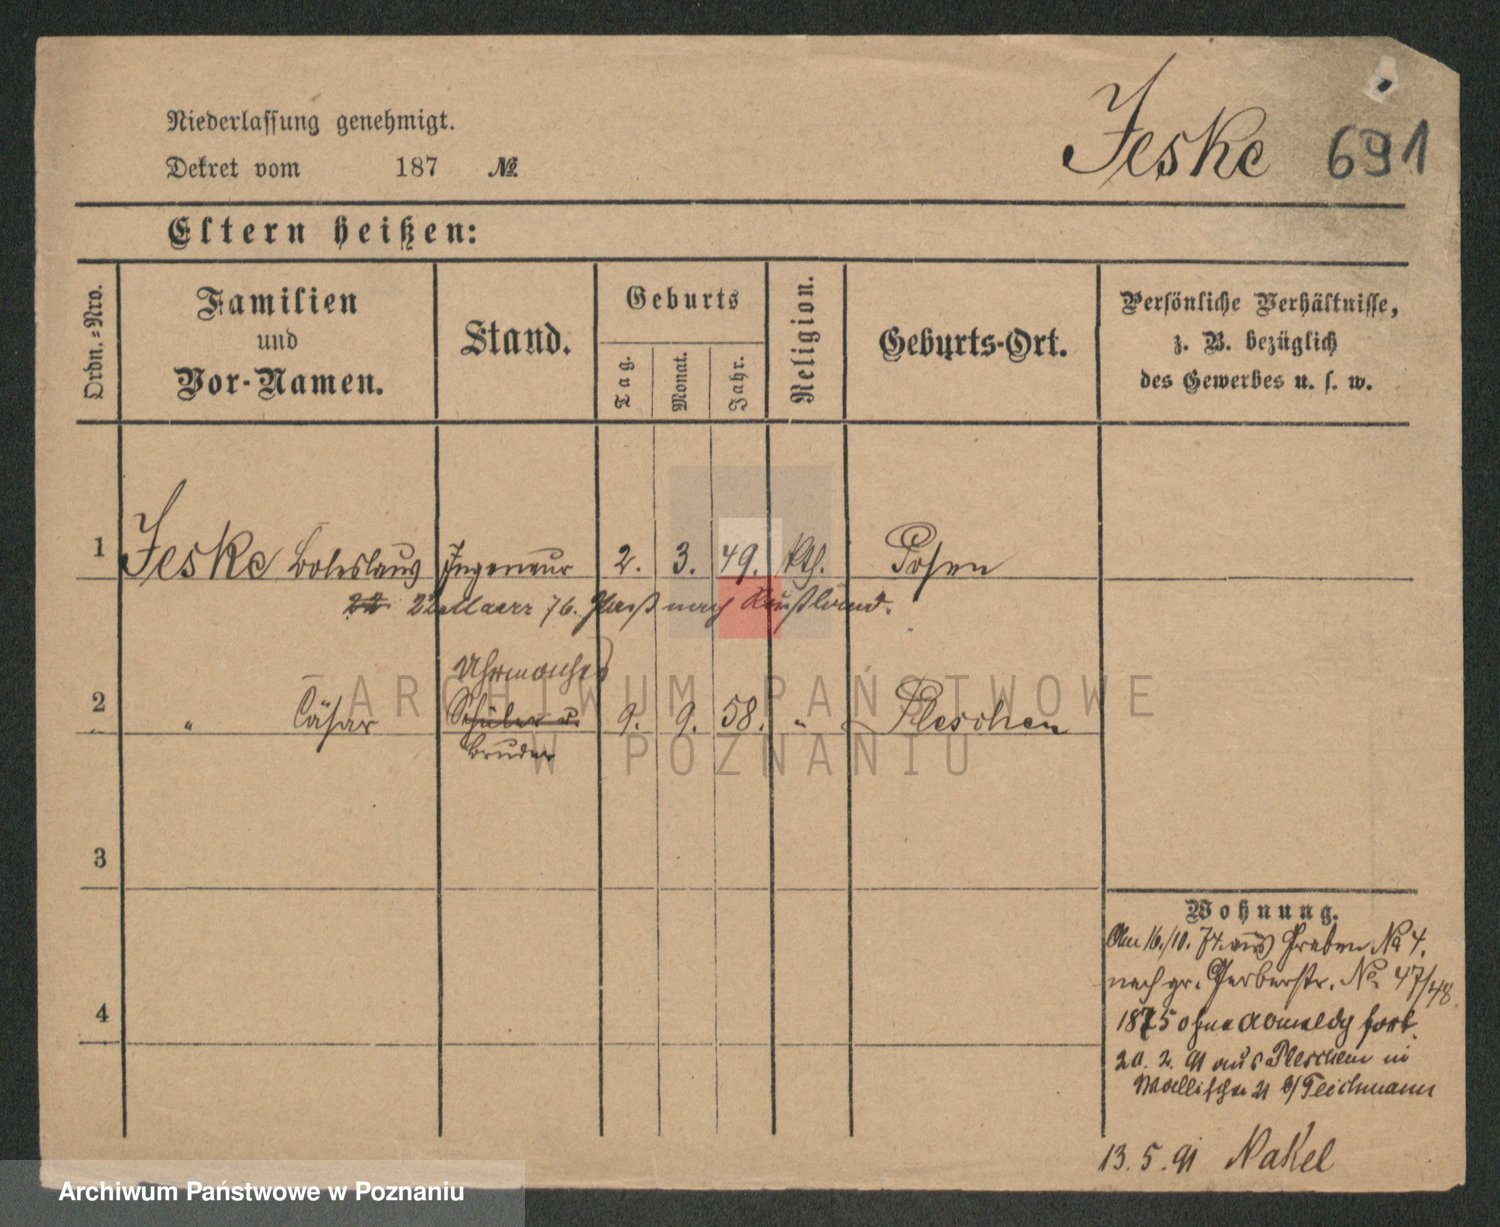 Niederlassung genehmigt.
Dekret vom 187 №
Jeske 691
Eltern heißen:
Ordn.=Nro.
Familien
und
Vor-Namen.
Stand.
Geburts
Tag.
Monat.
Jahr.
Religion.
Geburts-Ort.
Persönliche Verhältnisse,
z. B. bezüglich
des Gewerbes u. s. w.
1 Jeske Boleslaus Ingenieur 2. 3. 49. kth. Posen
22 22 Maerz 76. Paß nach Rußland.
Uhrmacher
2 " Cäsar Schüler u. 9. 9. 58. " Pleschen
Bruder
3
4
Wohnung.
Am 16./10. 74. aus Graben No 4.
nach gr. Gerberstr. No. 47/48.
1875 ohne Abmeldg fort.
20. 2. 91 aus Pleschen in
Wallischei 21 b/Teichmann
13. 5. 91 Nakel
ARCHIWUM PAŃSTWOWE
W POZNANIU
Archiwum Państwowe w Poznaniu